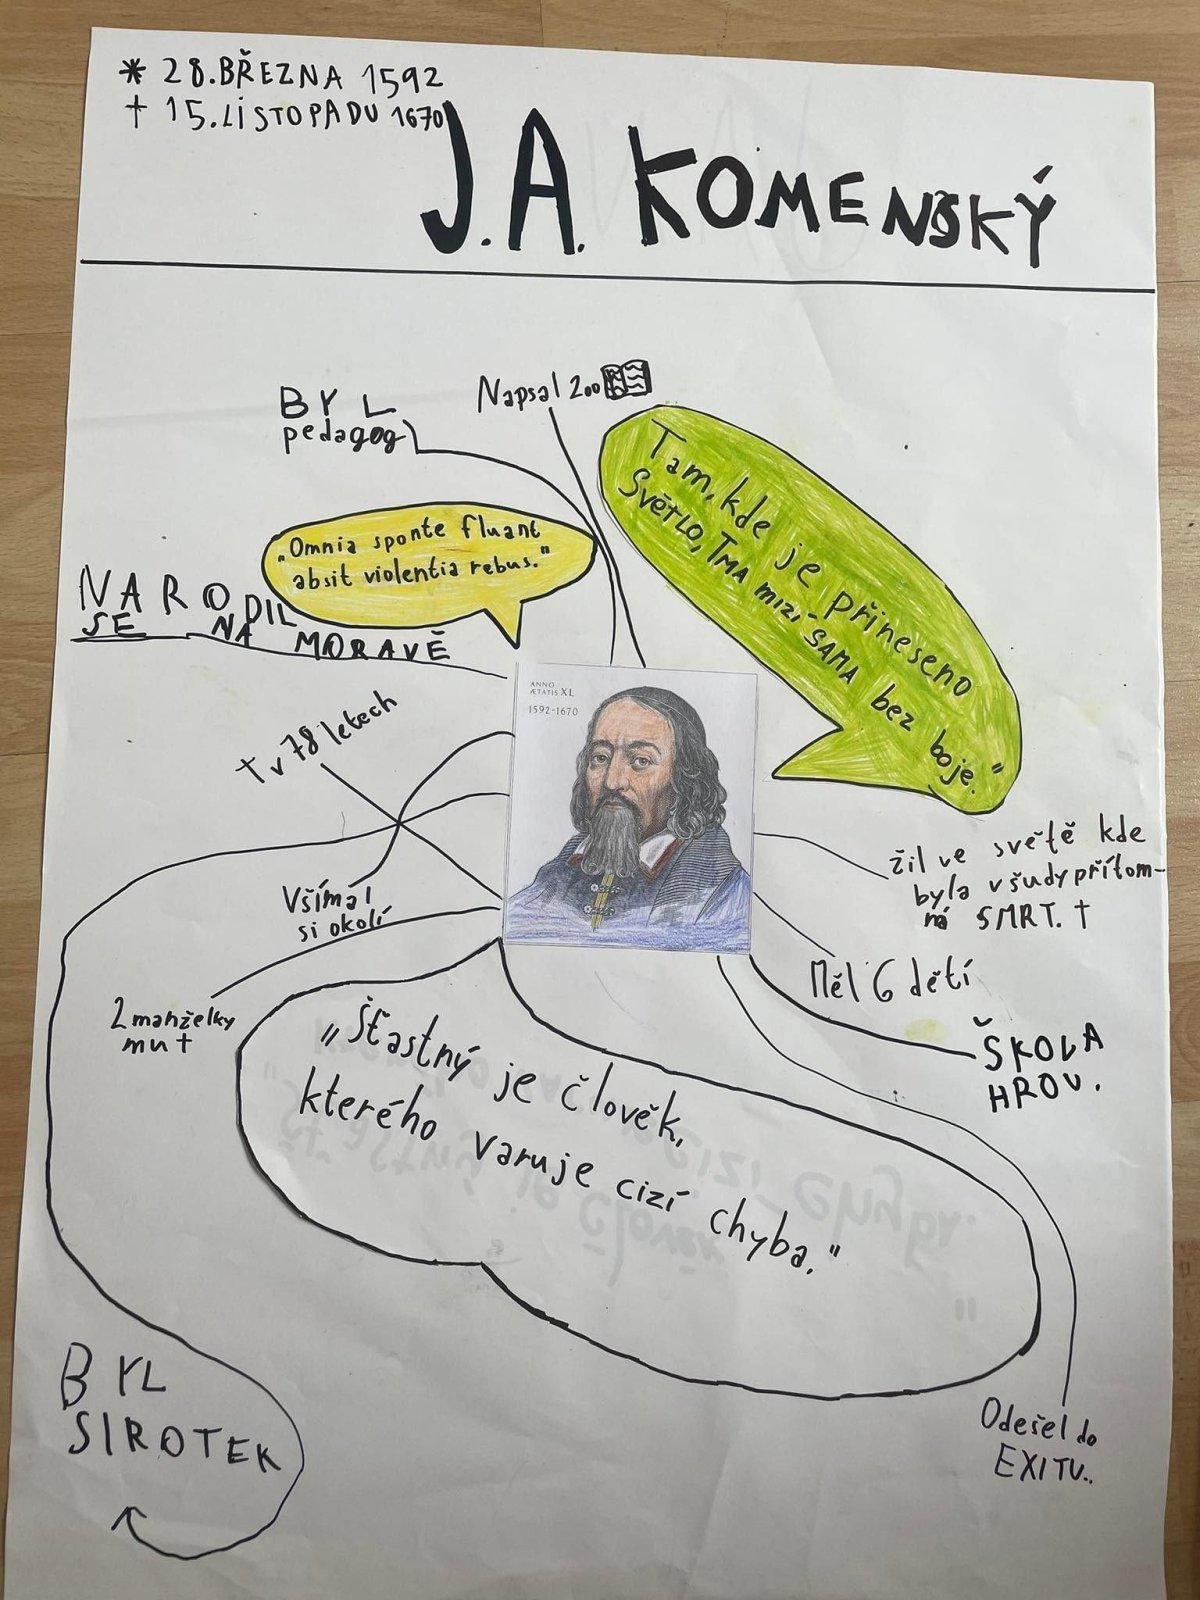 * 28. BŘEZNA 1592
† 15. LISTOPADU 1670
J. A. KOMENSKÝ
Napsal 200
BYL
pedagog
Tam, kde je přineseno
SVĚTLO, TMA mizí SAMA bez boje."
„Omnia sponte fluant
absit violentia rebus."
NARODIL
SE NA MORAVĚ
ANNO
ÆTATIS XL
1592-1670
† v 78 letech
žil ve světě kde
byla všudypřítom-
ná SMRT. †
Všímal
si okolí
Měl 6 dětí
2 manželky
mu †
ŠKOLA
HROU.
„Šťastný je člověk,
kterého varuje cizí chyba."
BYL
SIROTEK
Odešel do
EXITU..